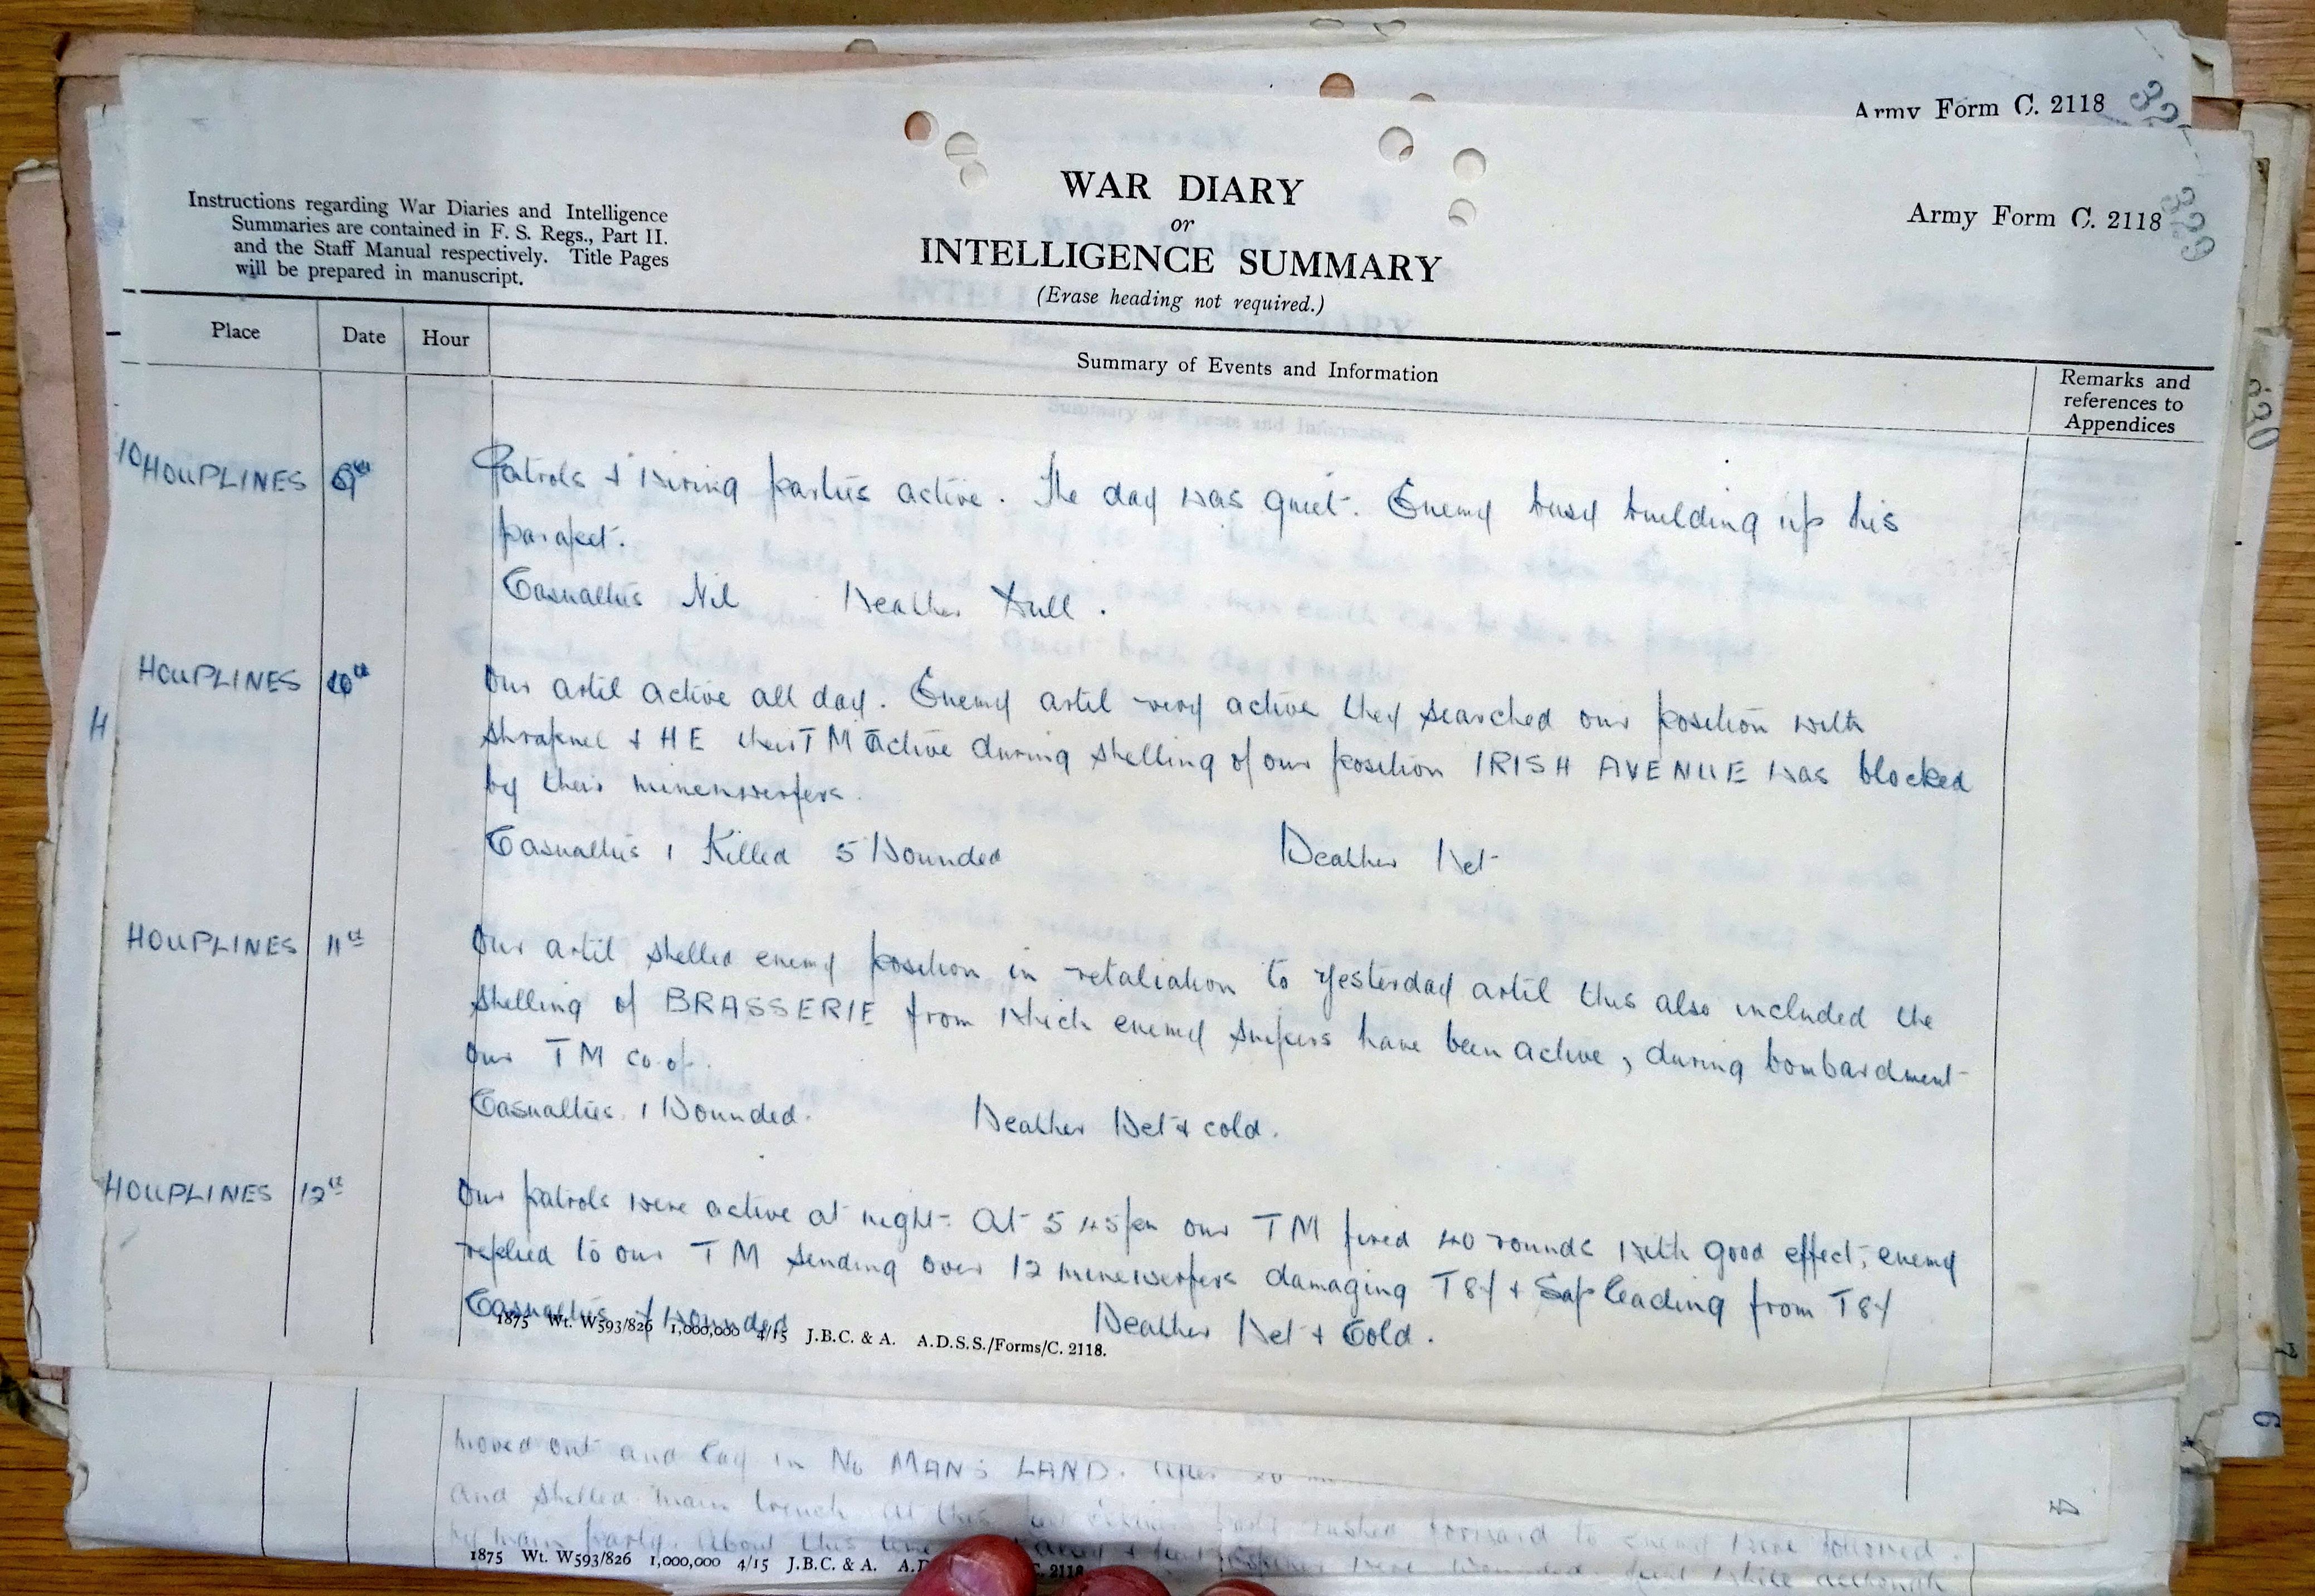 Army Form C. 2118
32
Army Form C. 2118
329
Instructions regarding War Diaries and Intelligence
Summaries are contained in F. S. Regs., Part II.
and the Staff Manual respectively. Title Pages
will be prepared in manuscript.
WAR DIARY
or
INTELLIGENCE SUMMARY
(Erase heading not required.)
Place Date Hour
Summary of Events and Information
Remarks and
references to
Appendices
320
10
HOUPLINES 9th Patrols & Wiring parties active. The day was quiet. Enemy busy building up his
parapet.
Casualties Nil Weather Dull.
HOUPLINES 10th Our artil active all day. Enemy artil very active they searched our position with
H
shrapnel & HE their TM active during shelling of our position IRISH AVENUE was blocked
by their minenwerfers.
Casualties 1 Killed 5 Wounded Weather Wet
HOUPLINES 11th Our artil shelled enemy position in retaliation to yesterday artil this also included the
shelling of BRASSERIE from which enemy snipers have been active, during bombardment
our TM co-op.
Casualties 1 Wounded. Weather Wet & cold.
HOUPLINES 12th Our patrols were active at night. At 5 45pm our TM fired 40 rounds with good effect, enemy
replied to our TM sending over 12 minewerfers damaging T84 & Sap leading from T84
Casualties Wounded Weather Wet & Cold.
1875 Wt. W593/826 1,000,000 4/15 J.B.C. & A. A.D.S.S./Forms/C. 2118.
moved out and lay in No MANS LAND. After
and shelled main trench at this
by main party. About this time
rushed forward to enemy wire followed.
1875 Wt. W593/826 1,000,000 4/15 J.B.C. & A. C. 2118